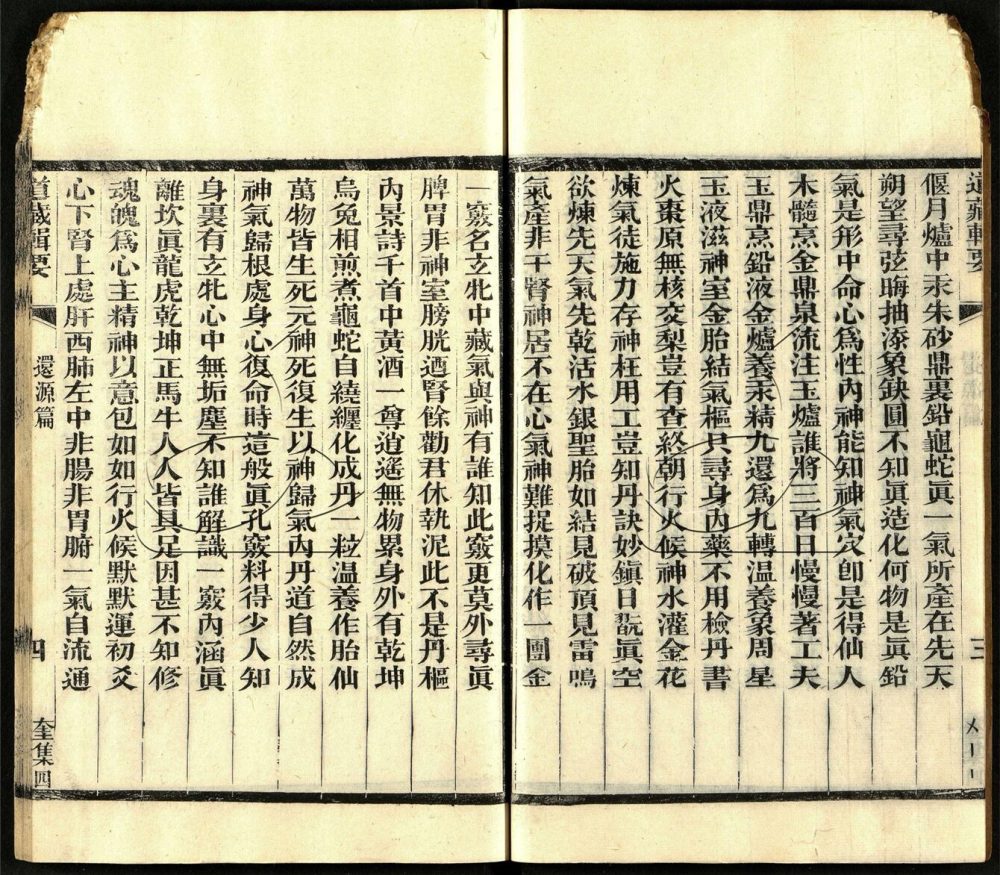 道藏輯要
三
偃月爐中汞朱砂鼎裏鉛龜蛇眞一氣所產在先天
朔望尋弦晦抽添象缺圓不知眞造化何物是眞鉛
氣是形中命心爲性內神能知神氣穴卽是得仙人
木髓烹金鼎泉流注玉爐誰將三百日慢慢著工夫
玉鼎烹鉛液金爐養汞精九還爲九轉溫養象周星
玉液滋神室金胎結氣樞只尋身內藥不用檢丹書
火棗原無核交梨豈有查終朝行火候神水灌金花
煉氣徒施力存神枉用工豈知丹訣妙鎭日翫眞空
欲煉先天氣先乾活水銀聖胎如結見破頂見雷鳴
氣產非干腎神居不在心氣神難捉摸化作一團金
一竅名玄牝中藏氣與神有誰知此竅更莫外尋眞
脾胃非神室膀胱迺腎餘勸君休執泥此不是丹樞
內景詩千首中黃酒一尊逍遙無物累身外有乾坤
烏兔相煎煮龜蛇自繞纏化成丹一粒溫養作胎仙
萬物皆生死元神死復生以神歸氣內丹道自然成
神氣歸根處身心復命時這般眞孔竅料得少人知
身裏有玄牝心中無垢塵不知誰解識一竅內涵眞
離坎眞龍虎乾坤正馬牛人人皆具足因甚不知修
魂魄爲心主精神以意包如如行火候默默運初爻
心下腎上處肝西肺左中非腸非胃腑一氣自流通
道藏輯要
還源篇
四
奎集四